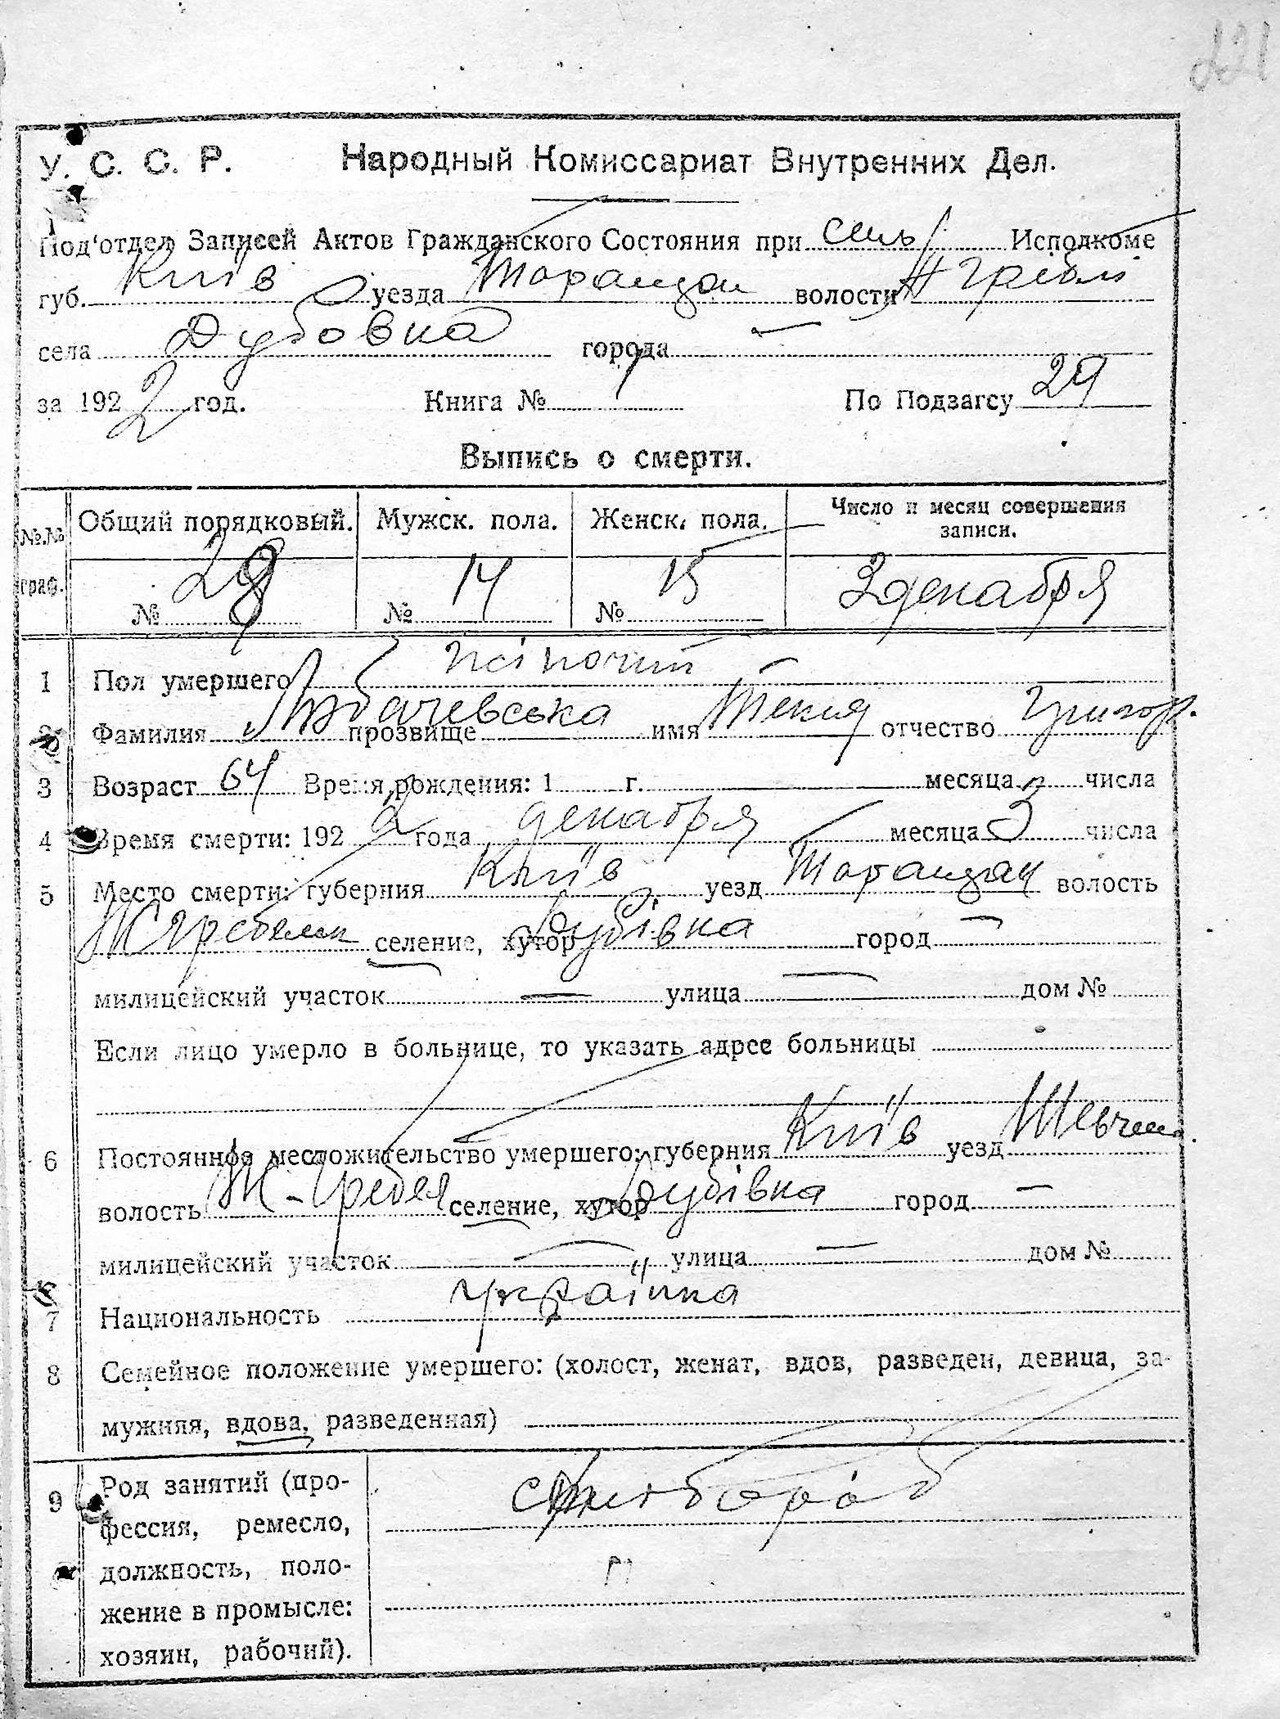 221
У. С. С. Р. Народный Комиссариат Внутренних Дел.
Под'отдел Записей Актов Гражданского Состояния при сель Исполкоме
губ. Київ уезда Таращан волости
села Дубовка города —
за 1922 год. Книга № 1 По Подзагсу 29
Выпись о смерти.
№№ граф. Общий порядковый. Мужск. пола. Женск. пола. Число и месяц совершения записи.
№ 29 № 14 № 15 3 декабря
1 Пол умершего жіночий
2 Фамилия прозвище имя Текля отчество Григор.
3 Возраст 64 Время рождения: 1 г. месяца числа
4 Время смерти: 1922 года декабря месяца 3 числа
5 Место смерти: губерния Київ уезд Таращан волость
селение, хутор Дубівка город —
милицейский участок — улица — дом №
Если лицо умерло в больнице, то указать адрес больницы
6 Постоянное местожительство умершего: губерния Київ уезд
волость Ж-Гребел селение, хутор Дубівка город —
милицейский участок — улица — дом №
7 Национальность Українка
8 Семейное положение умершего: (холост, женат, вдов, разведен, девица, за-
мужняя, вдова, разведенная)
9 Род занятий (про-
фессия, ремесло,
должность, поло-
жение в промысле:
хозяин, рабочий).
хлібороб